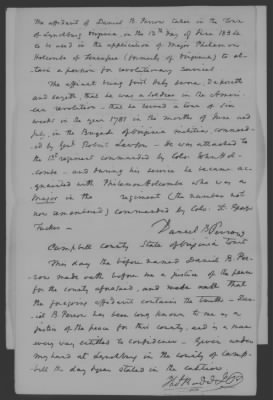 The affidavit of Daniel B. Perrow taken in the Town
of Lynchburg Virginia, on the 12th day of June 1834
to be used in the application of Major Philemon
Holcombe of Tennessee (formerly of Virginia) to ob-
tain a pension for revolutionary services
The affiant being first duly sworn, deposeth
and sayeth, that he was a soldier in the Ameri-
can revolution - that he served a tour of six
weeks in the year 1781 in the months of June and
July, in the Brigade of Virginia militia, command-
ed by Genl Robert Lawson - He was attached to
the regiment commanded by Colo. John Hol-
combe - and during his service he became ac-
quainted with Philemon Holcombe who was a
Major in the regiment (the number not
now remembered) commanded by Colo. St George
Tucker -
Daniel B Perrow
Campbell county State of Virginia Towit
This day the before named Daniel B. Per-
row made oath before me a justice of the peace
for the county aforesaid, and made oath that
the foregoing affidavit contains the truth - Dan-
iel B. Perrow has been long known to me as a
justice of the peace for this county and is a man
every way entitled to confidence - Given under
my hand at Lynchburg in the county of Camp-
bell the day & year stated in the caption